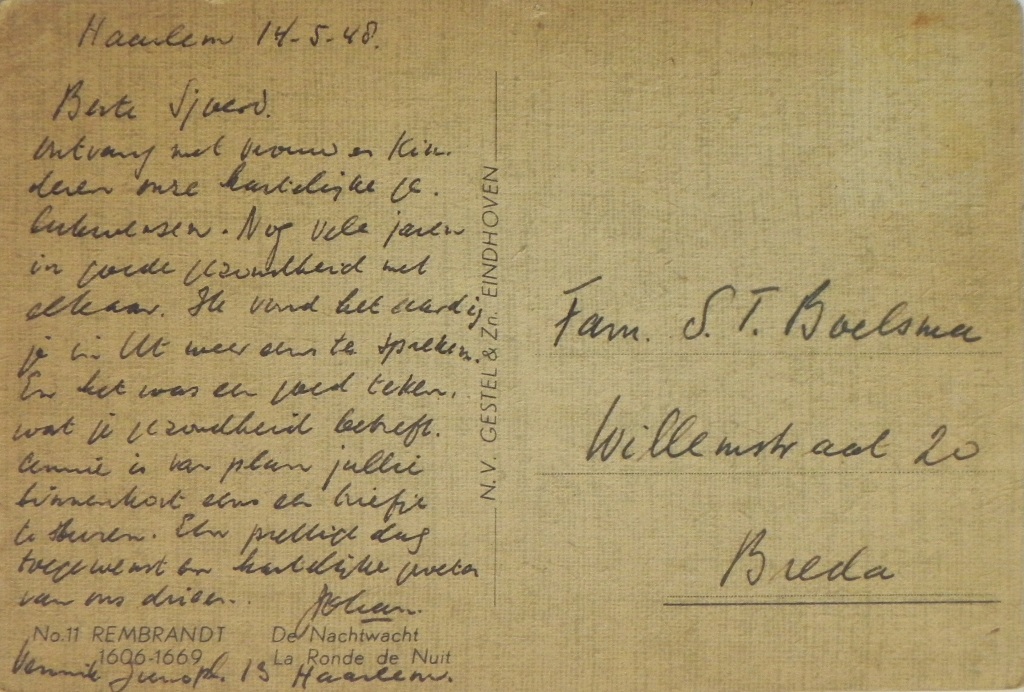 Haarlem 14-5-48.
Beste Sjoerd.
Ontvang met vrouw en Kin-
deren onze hartelijke ge-
lukwensen. Nog vele jaren
in goede gezondheid met
elkaar. Ik vond het aardig
je in Ut weer eens te spreken.
En het was een goed teken,
wat je gezondheid betreft.
Annie is van plan jullie
binnenkort eens een briefje
te sturen. Een prettige dag
toegewenst en hartelijke groeten
van ons drieën.
Johan.
No.11 REMBRANDT
1606-1669
De Nachtwacht
La Ronde de Nuit
13 Haarlem.
N.V. GESTEL & Zn. EINDHOVEN
Fam. S. T. Boelsma
Willemstraat 20
Breda